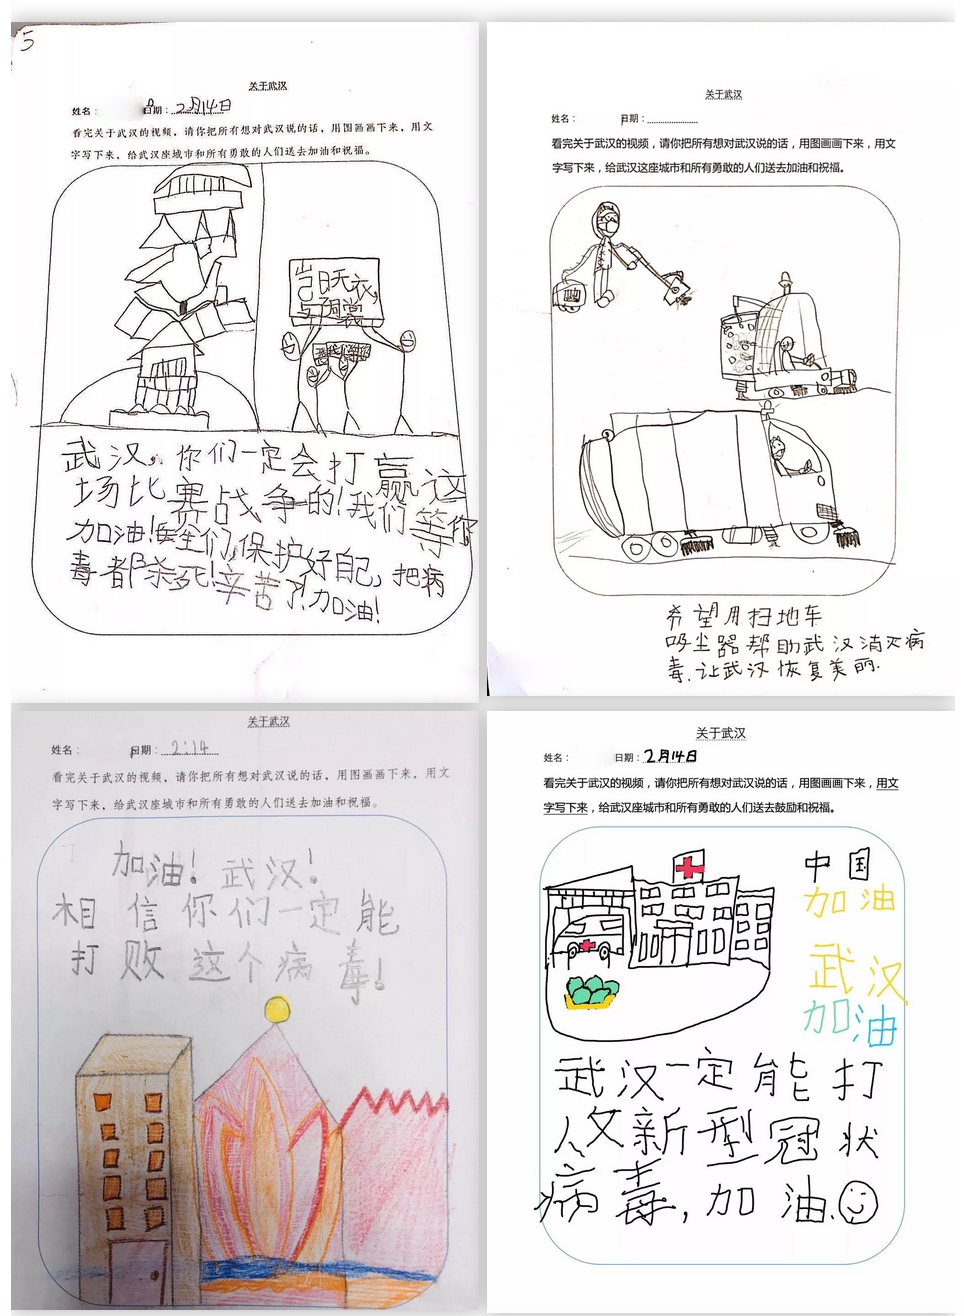 5
关于武汉
姓名： 日期：2月14日
看完关于武汉的视频，请你把所有想对武汉说的话，用图画画下来，用文
字写下来，给武汉座城市和所有勇敢的人们送去加油和祝福。
岂曰无衣，
与子同裳
武汉，你们一定会打赢这
场比赛战争的！我们等你
加油！医生们，保护好自己，把病
毒都杀死！辛苦了！加油！
关于武汉
姓名： 日期：
看完关于武汉的视频，请你把所有想对武汉说的话，用图画画下来，用文
字写下来，给武汉这座城市和所有勇敢的人们送去加油和祝福。
希望用扫地车
吸尘器帮助武汉消灭病
毒.让武汉恢复美丽.
关于武汉
姓名： 日期：2:14
看完关于武汉的视频，请你把所有想对武汉说的话，用图画画下来，用文
字写下来，给武汉座城市和所有勇敢的人们送去加油和祝福。
加油！武汉！
相信你们一定能
打败这个病毒！
关于武汉
姓名： 日期：2月14日
看完关于武汉的视频，请你把所有想对武汉说的话，用图画画下来，用文
字写下来，给武汉座城市和所有勇敢的人们送去鼓励和祝福。
中国
加油
武汉
加油
武汉一定能打
败新型冠状
病毒,加油.